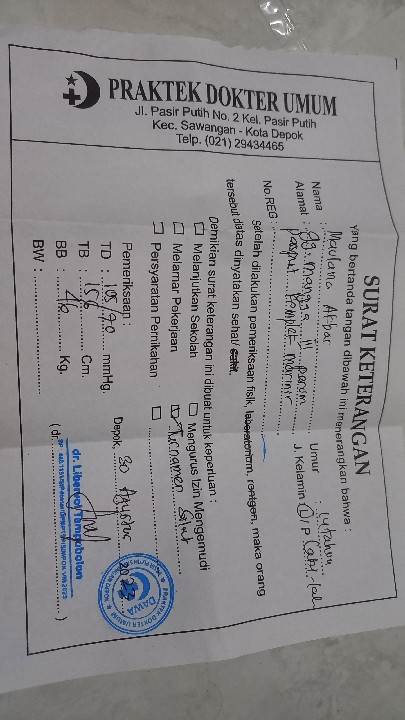 PRAKTEK DOKTER UMUM
Jl. Pasir Putih No. 2 Kel. Pasir Putih
Kec. Sawangan - Kota Depok
Telp. (021) 29434465
SURAT KETERANGAN
yang bertanda tangan dibawah ini menerangkan bahwa :
Nama : Maulana Akbar Umur :
Alamat : J. Kelamin : L / P
No.REG :
Setelah dilakukan pemeriksaan fisik, laboratorium, rontgen, maka orang
tersebut diatas dinyatakan sehat/ sakit.
Demikian surat keterangan ini dibuat untuk keperluan :
Melanjutkan Sekolah Mengurus Izin Mengemudi
Melamar Pekerjaan Turnamen Silat
Persyaratan Pernikahan
Pemeriksaan :
TD : 105/70 mmHg.
TB : 156 Cm.
BB : 46 Kg.
BW :
Depok, 30 Agustus
(dr. )